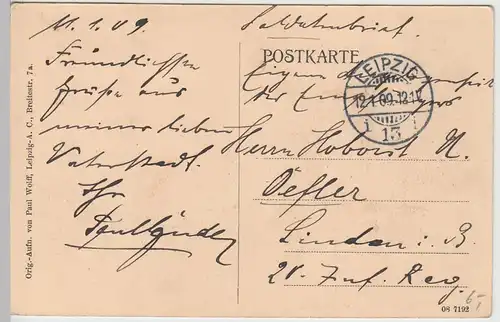 11.1.09.
Freundlichste
Grüße aus
meiner lieben
Vaterstadt.
Ihr
Soldatenbrief.
POSTKARTE
Eigene
der Empfängers
Herrn Hoboist
Oefler
Linden i. B.
Inf. Reg.
LEIPZIG
12.1.09.12-1V.
13
Orig.-Aufn. von Paul Wolff, Leipzig-A. C., Breitestr. 7a.
08 7192
6,-